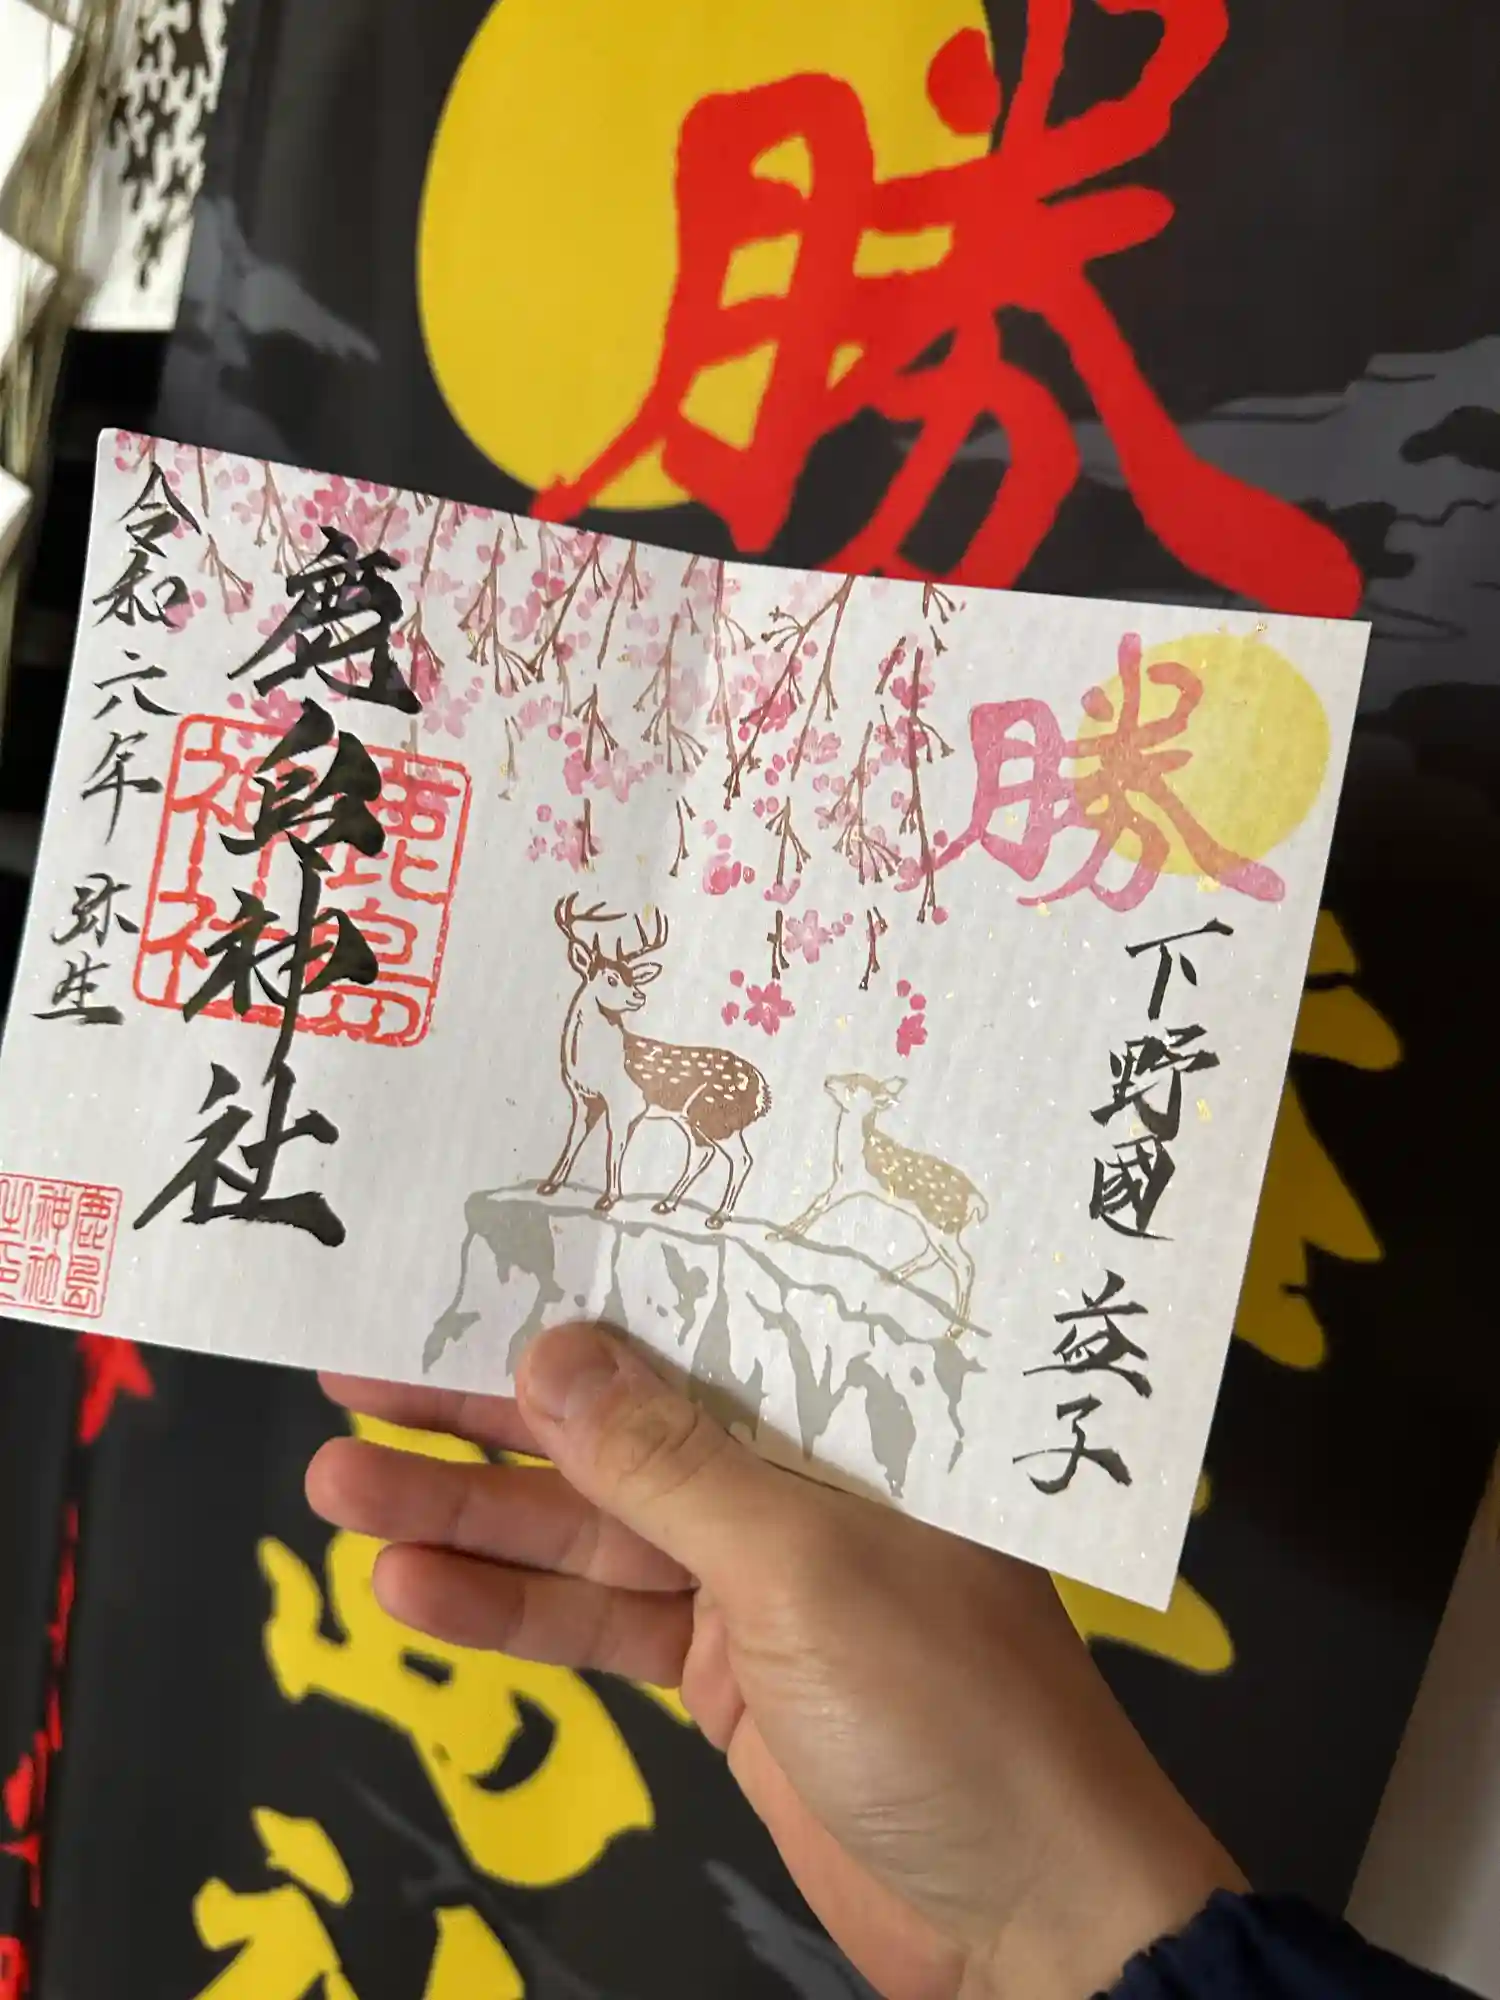 勝
勝
下野國 益子
鹿島神社
鹿島
神社
令和六年 弥生
鹿島
神社
之印